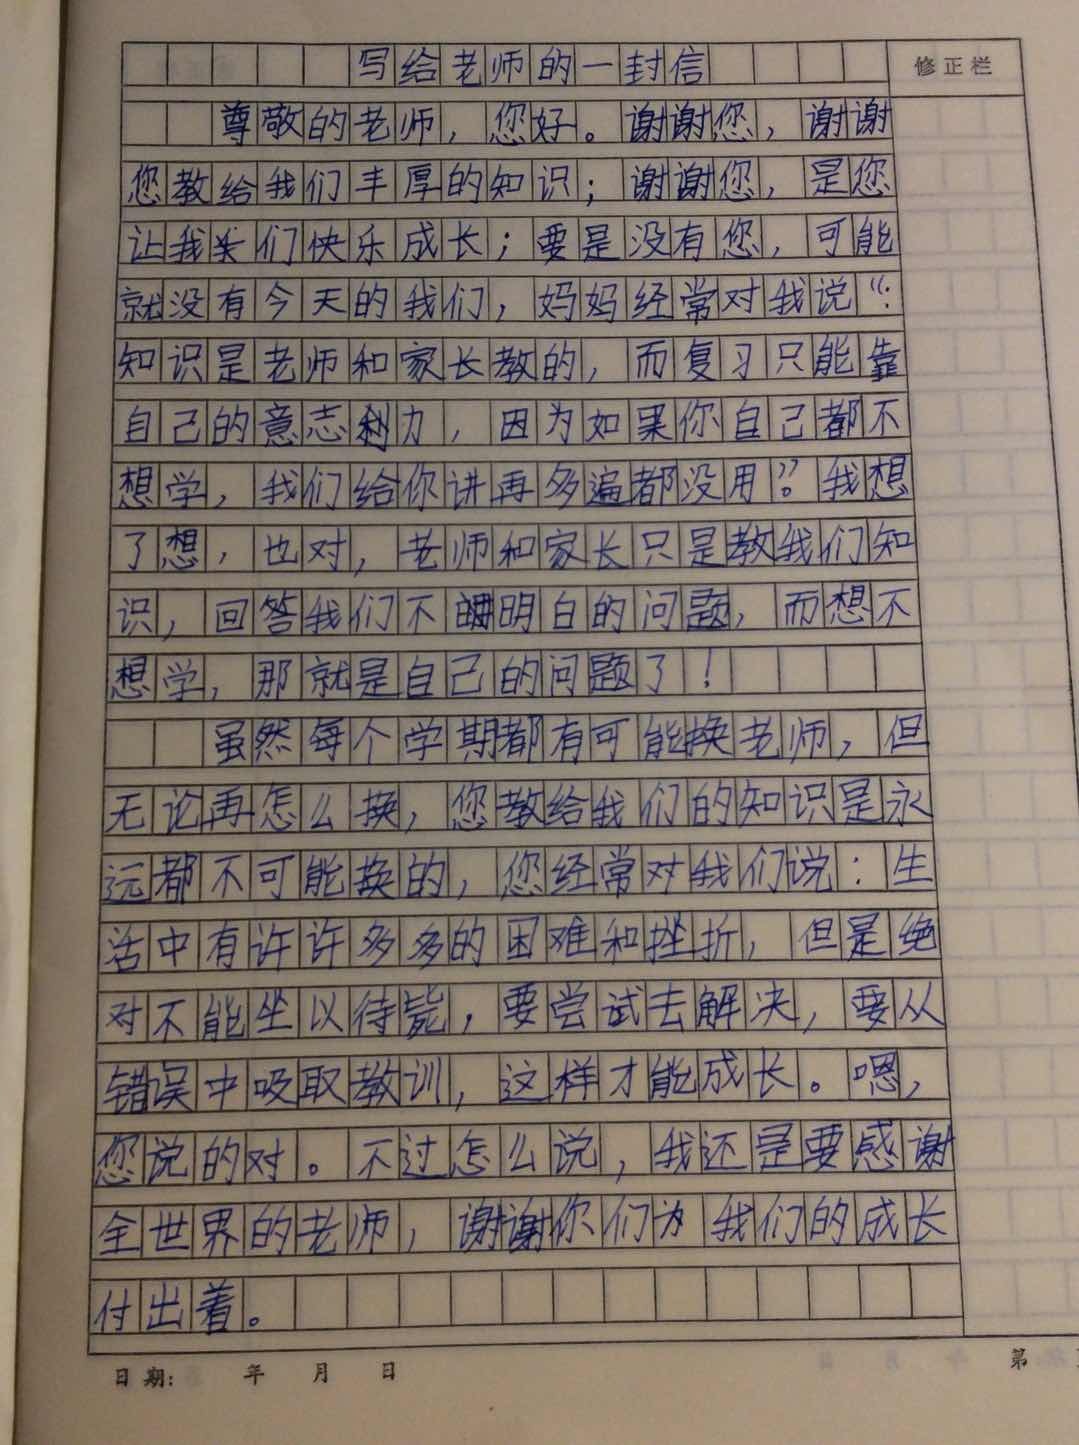 写给老师的一封信
修正栏
尊敬的老师，您好。谢谢您，谢谢
您教给我们丰厚的知识；谢谢您，是您
让我们快乐成长；要是没有您，可能
就没有今天的我们，妈妈经常对我说“：
知识是老师和家长教的，而复习只能靠
自己的意志力，因为如果你自己都不
想学，我们给你讲再多遍都没用”。我想
了想，也对，老师和家长只是教我们知
识，回答我们不明白的问题，而想不
想学，那就是自己的问题了！
虽然每个学期都有可能换老师，但
无论再怎么换，您教给我们的知识是永
远都不可能换的，您经常对我们说：生
活中有许许多多的困难和挫折，但是绝
对不能坐以待毙，要尝试去解决，要从
错误中吸取教训，这样才能成长。嗯，
您说的对。不过怎么说，我还是要感谢
全世界的老师，谢谢你们为我们的成长
付出着。
日期: 年 月 日
第